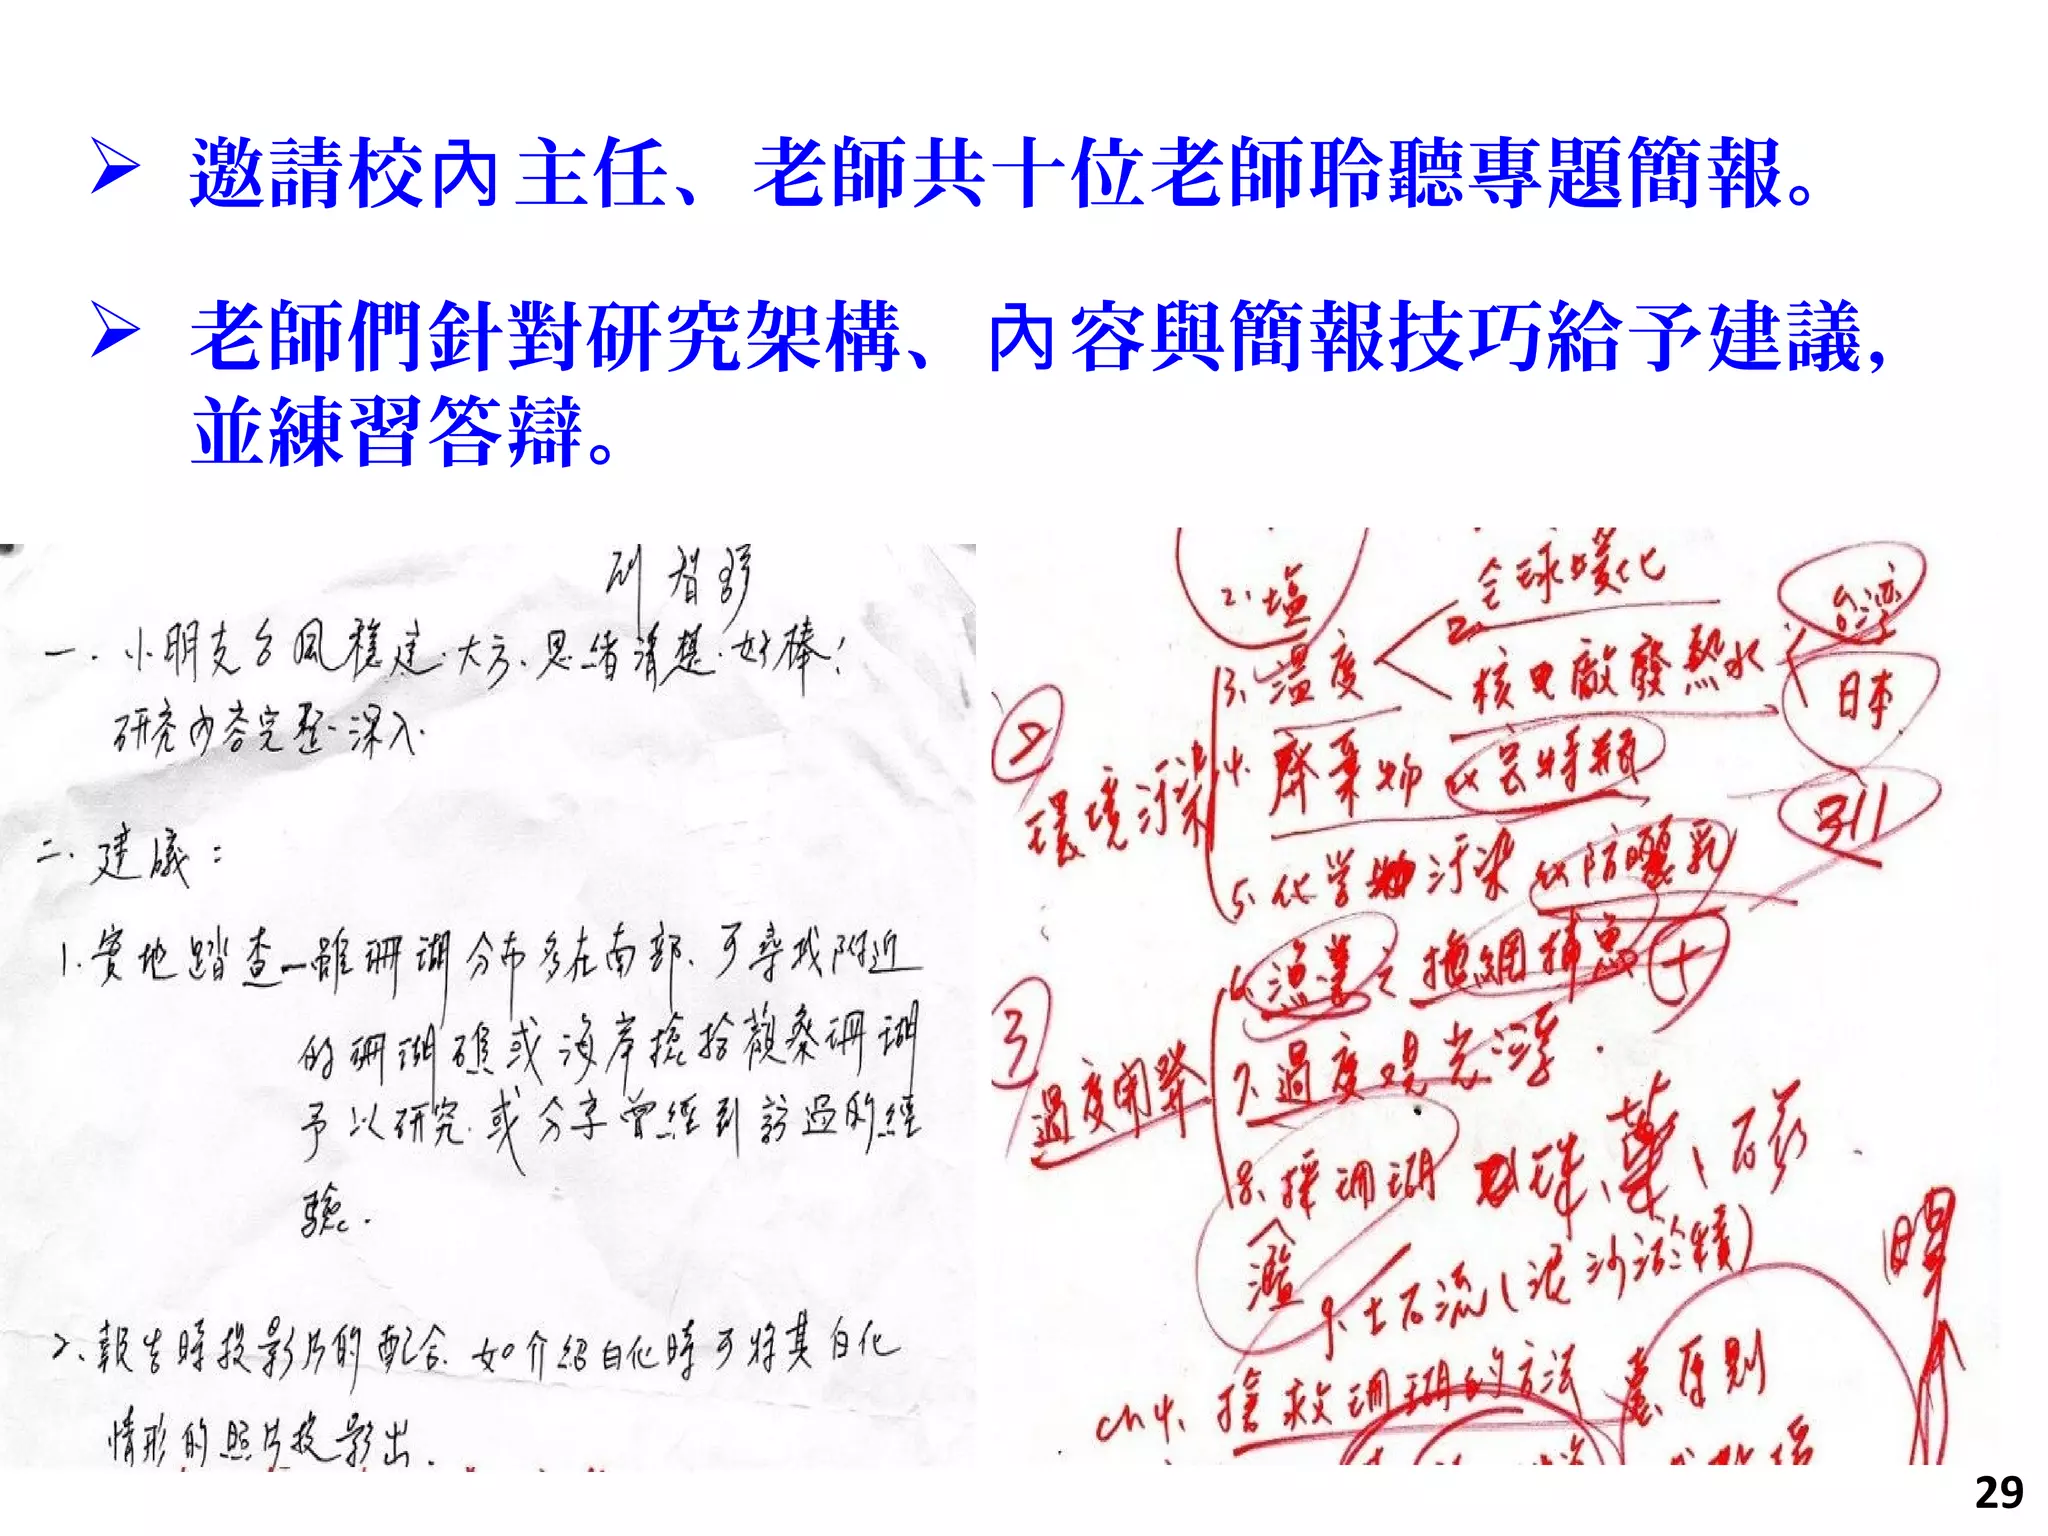 邀請校內主任、老師共十位老師聆聽專題簡報。
老師們針對研究架構、內容與簡報技巧給予建議，
並練習答辯。
一. 小朋友台風穩健.大方.思緒清楚.好棒!
研究內容完整.深入.
二. 建議:
1.實地踏查—雖珊瑚分布多在南部.可尋找附近
的珊瑚礁或海岸撿拾觀察珊瑚
予以研究.或分享曾經到訪過的經
驗.
2.報告時投影片的配合.如介紹白化時可將其白化
情形的照片投影出.
2.塩
全球暖化
台湾
3.溫度
2.
核電廠發熱水
日本
② 環境汙染
4.廢棄物 以宝特瓶
5.化学物汙染 以防曬乳
6.漁業之拖網捕魚
③ 過度開發
7.過度觀光浮
8.採珊瑚 珠、藥、
濫
9.土石流(泥沙淤積)
ch4.搶救珊瑚的方法
原則
29